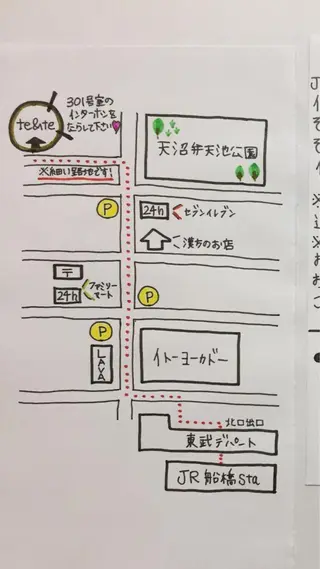 te&te
301号室の
インターホンを
ならして下さい
※細い路地です!
天沼弁天池公園
P
24h
セブンイレブン
漢方のお店
〒
24h
ファミリー
マート
P
P
LAVA
イトーヨーカドー
北口出口
東武デパート
JR 船橋sta
J